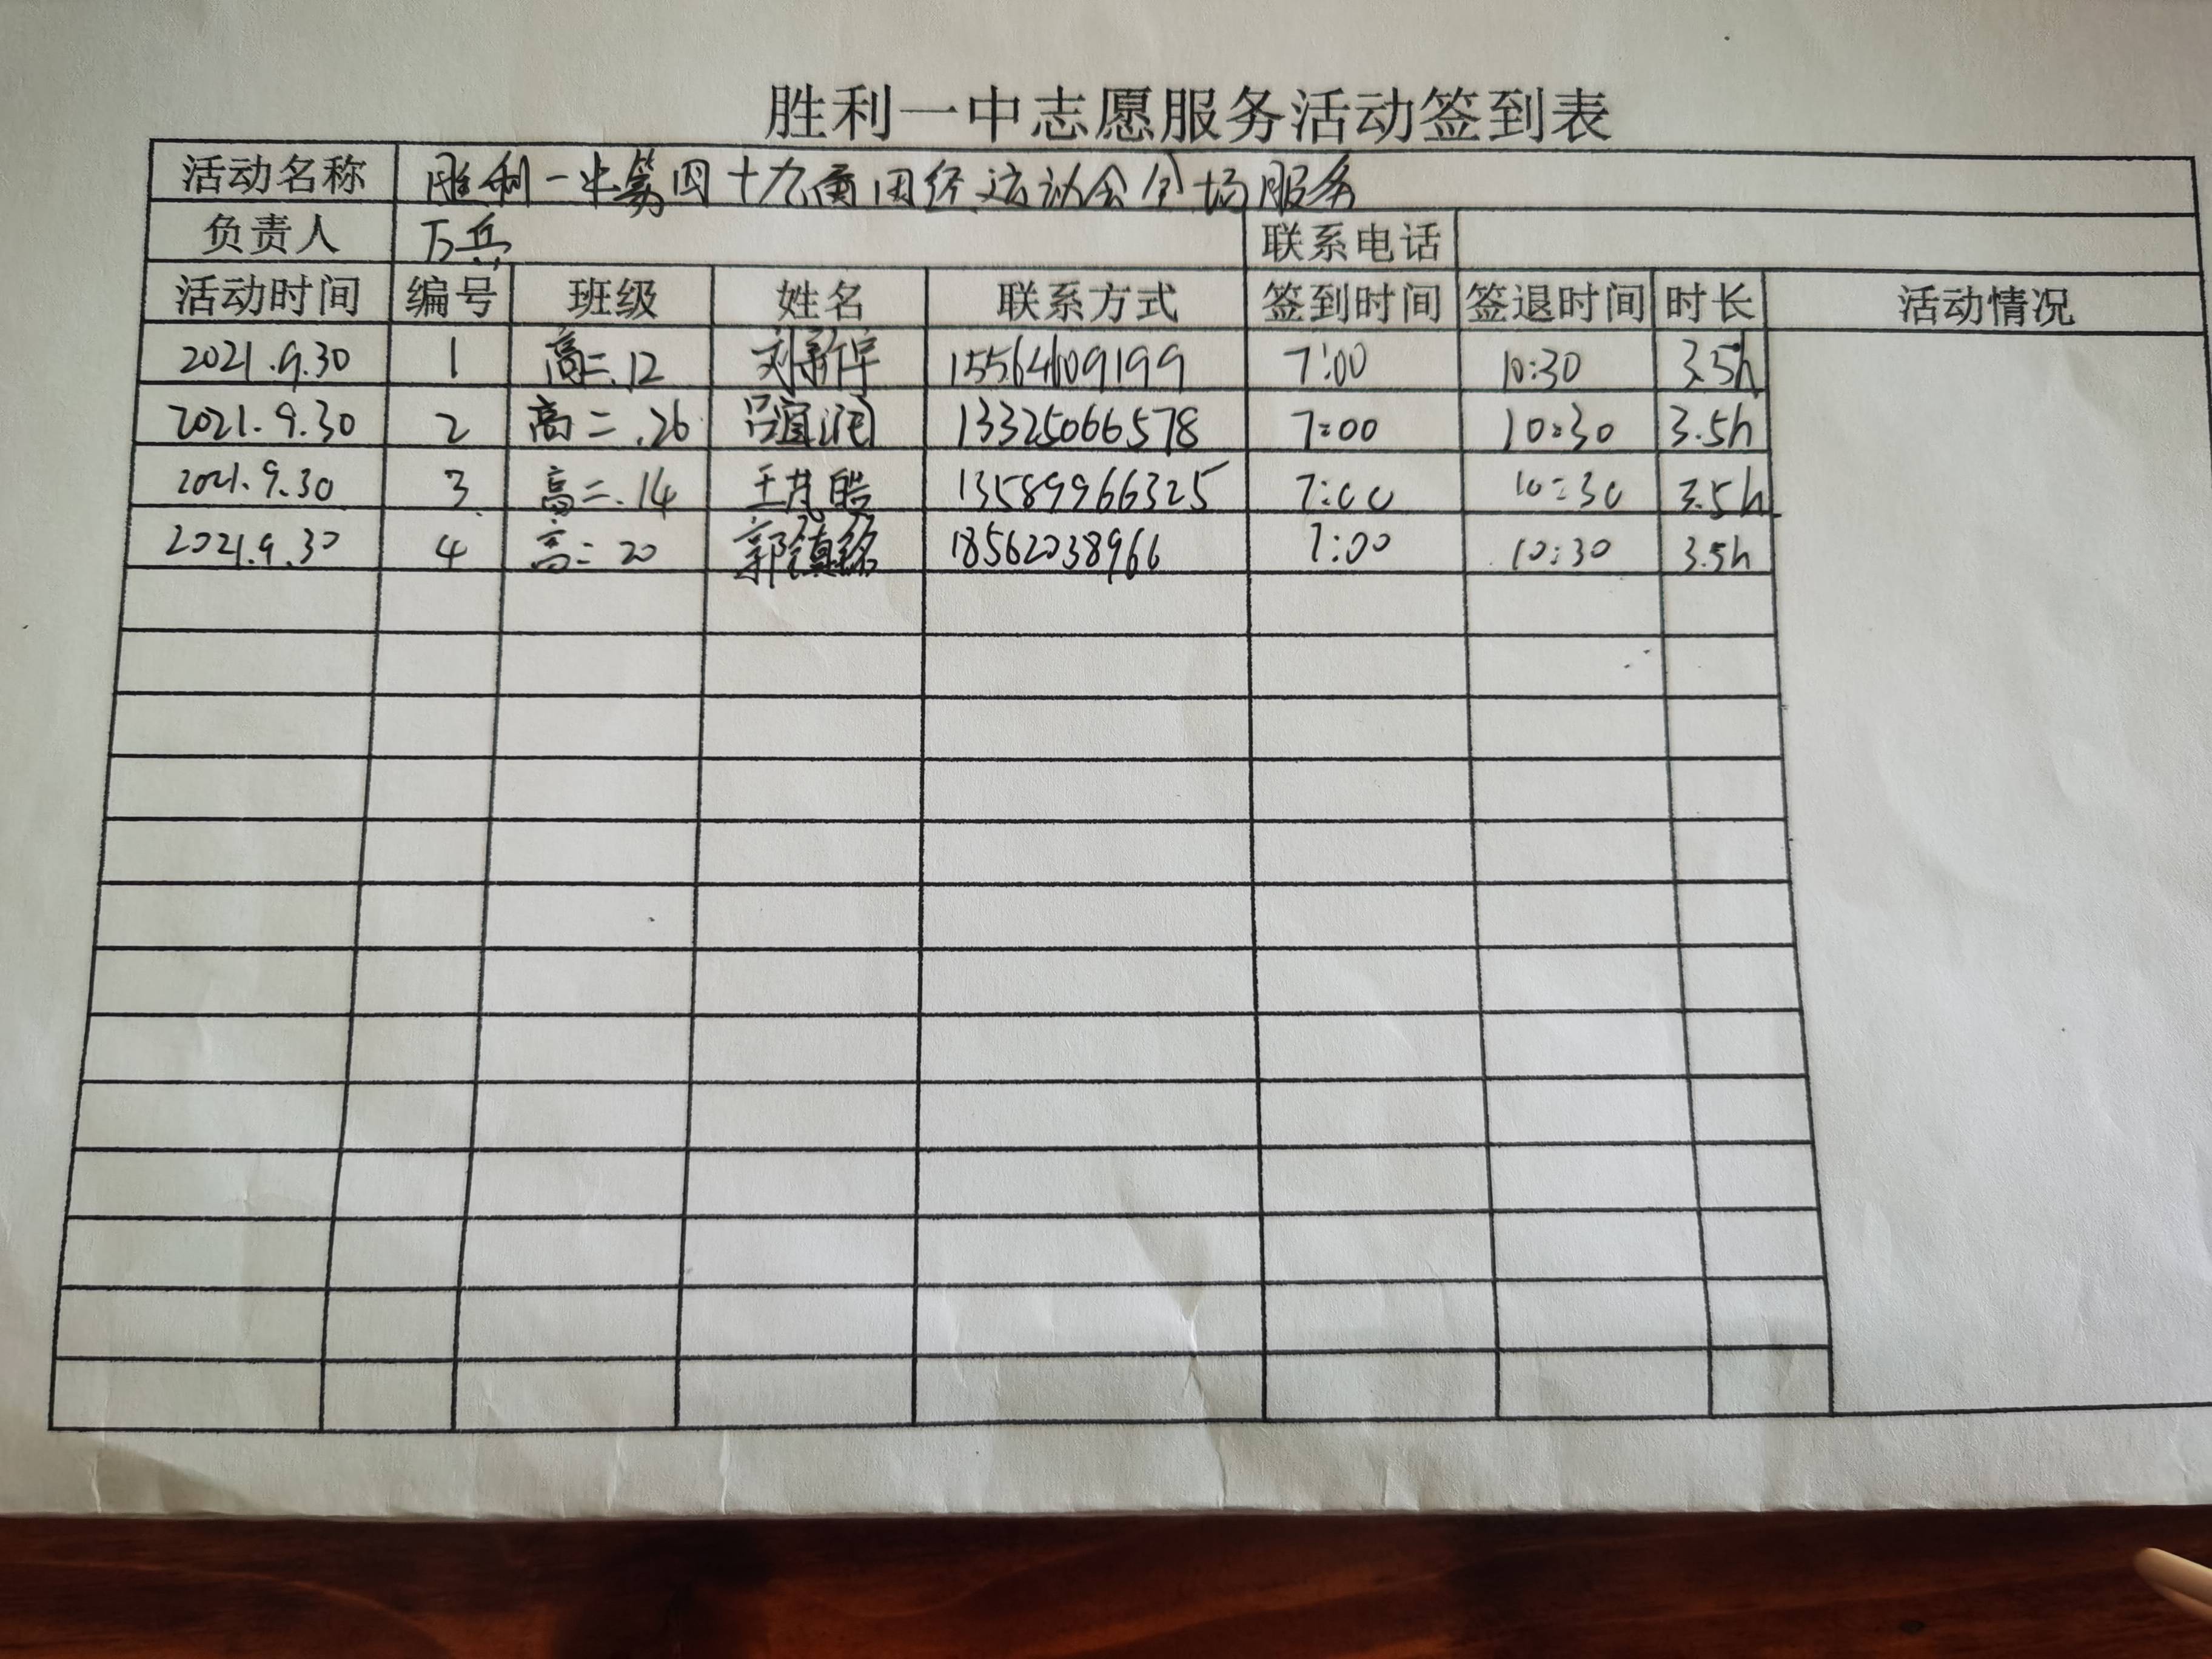 胜利一中志愿服务活动签到表
活动名称 胜利一中第四十九届田径运动会全场服务
负责人 万兵 联系电话
活动时间 编号 班级 姓名 联系方式 签到时间 签退时间 时长 活动情况
2021.9.30 1 高二.12 刘新宇 15564609199 7:00 10:30 3.5h
2021.9.30 2 高二.26 吕宜润 13325066578 7:00 10:30 3.5h
2021.9.30 3 高二.14 王 皓 13589966325 7:00 10:30 3.5h
2021.9.30 4 高二 20 郭镇铭 18562038966 7:00 10:30 3.5h